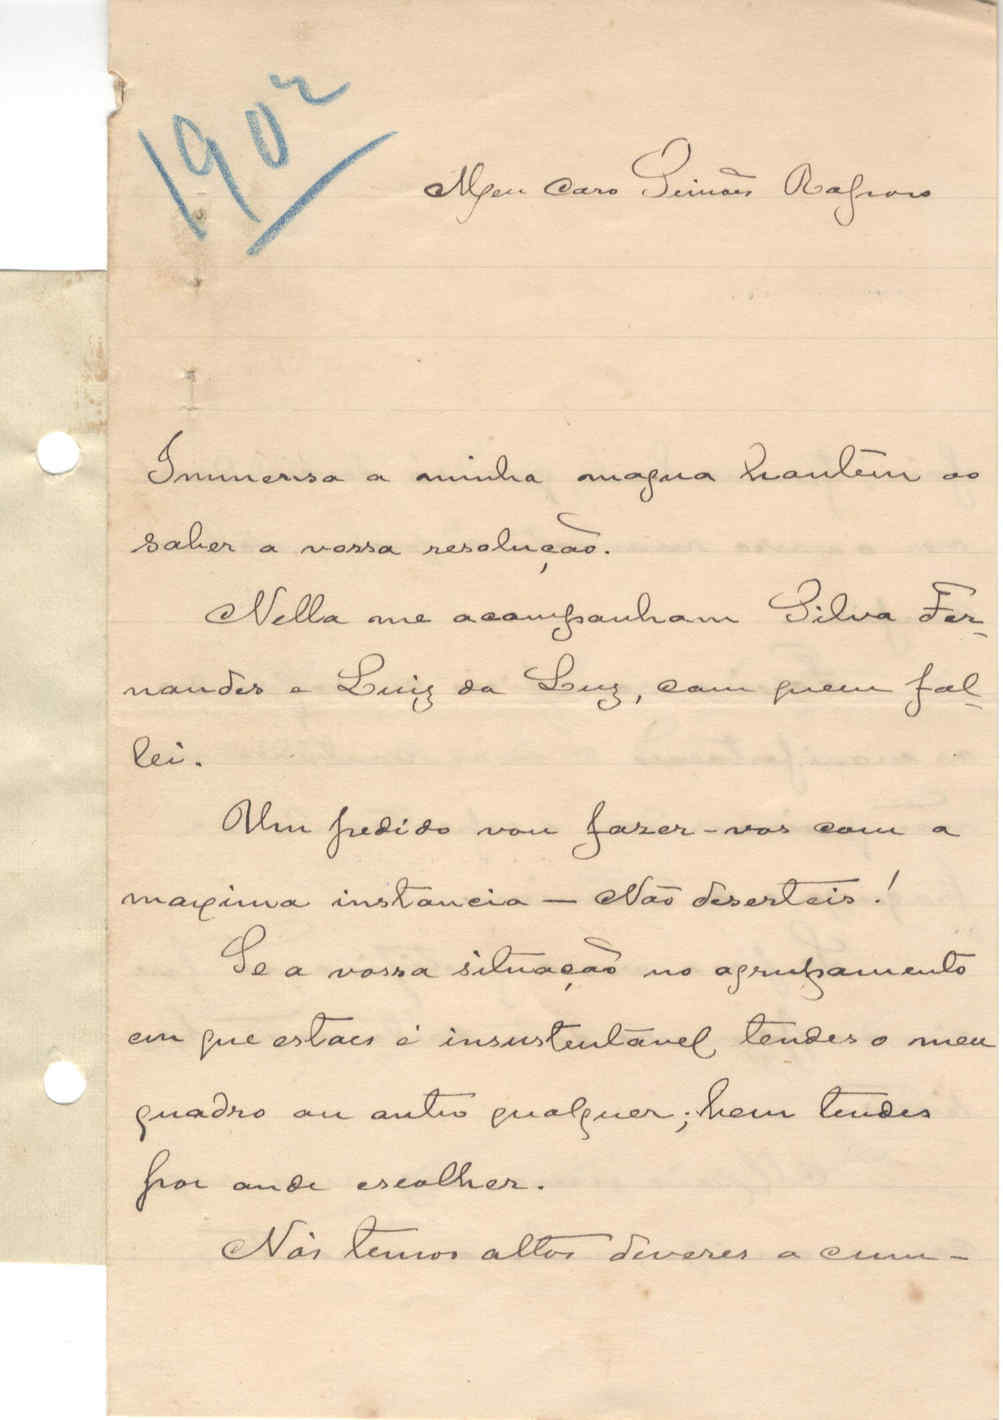 1902
Meu caro Simões Raposo
Immensa a minha magua hontem ao
saber a vossa resolução.
Nella me acompanham Silva Fer-
nandes e Luiz da Luz, com quem fal-
lei.
Um pedido vou fazer-vos com a
maxima instancia — Não deserteis!
Se a vossa situação no agrupamento
em que estaes é insustentavel, tendes o meu
quadro ou outro qualquer; bem tendes
por onde escolher.
Nós temos altos deveres a cum-